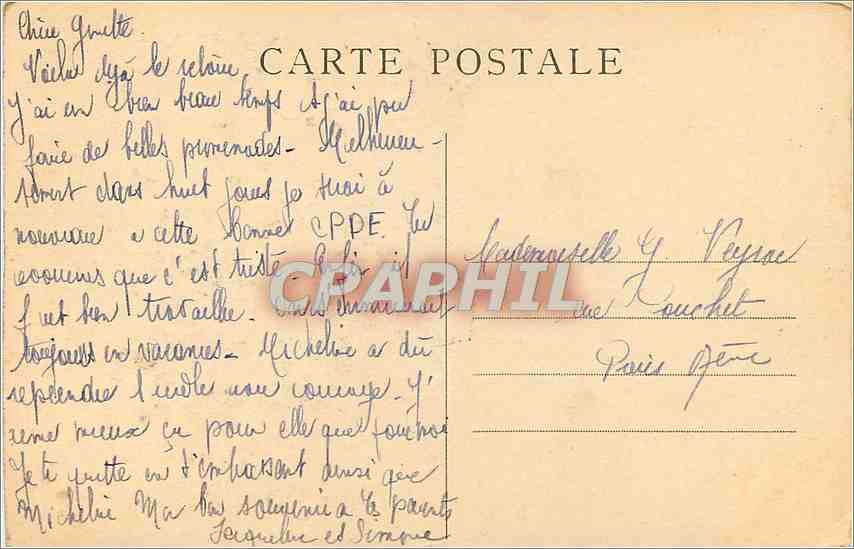 Chère Ginette.
Voilà déjà le retour
CARTE POSTALE
J'ai eu bien beau temps et j'ai pu
faire de belles promenades - Malheureu -
sement dans huit jours je serai à
nouveau a cette bonne CPDE. Tu
avoueras que c'est triste - Enfin il
faut bien travailler - On s'ennuierait
toujours en vacances - Micheline a dû
reprendre l'école mon courage. J'
aime mieux ça pour elle que pour moi
Je te quitte en t'embrassant ainsi que
Micheline Mon bon souvenir a tes parents
Jacqueline et Simone
Mademoiselle G. Veyrac
rue Pouchet
Paris
CPAPHIL